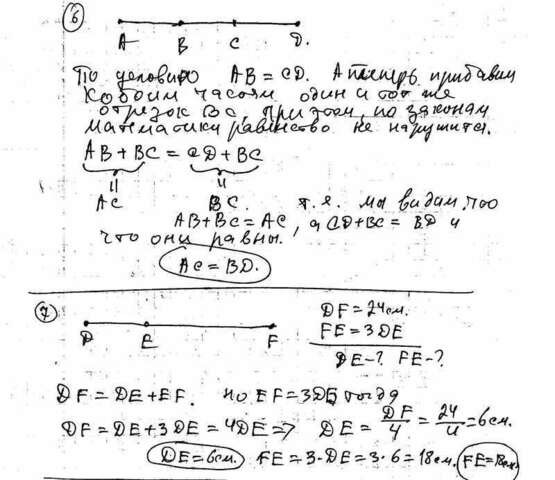 6
A B C D.
По условию AB = CD. А теперь прибавим
к обоим частям один и тот же
отрезок BC, при этом, по законам
математики равенство не нарушится.
AB + BC = CD + BC
" "
AC BC. т.е. мы видим, что
AB+BC=AC, а CD+BC = BD и
что они равны.
AC = BD.
7
D E F
DF = 24см.
FE = 3DE
DE-? FE-?
DF = DE + EF. но EF = 3DE, тогда
DF = DE + 3DE = 4DE => DE = DF/4 = 24/4 = 6см.
DE = 6см. FE = 3·DE = 3·6 = 18см. FE = 18см.